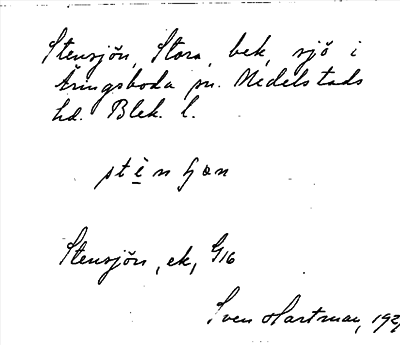 Stensjön, Stora, bek, sjö i
Tingsboda sn. Medelstads
hd. Blek. l.
Stensjön, ek, G16
Sven Hartman, 192